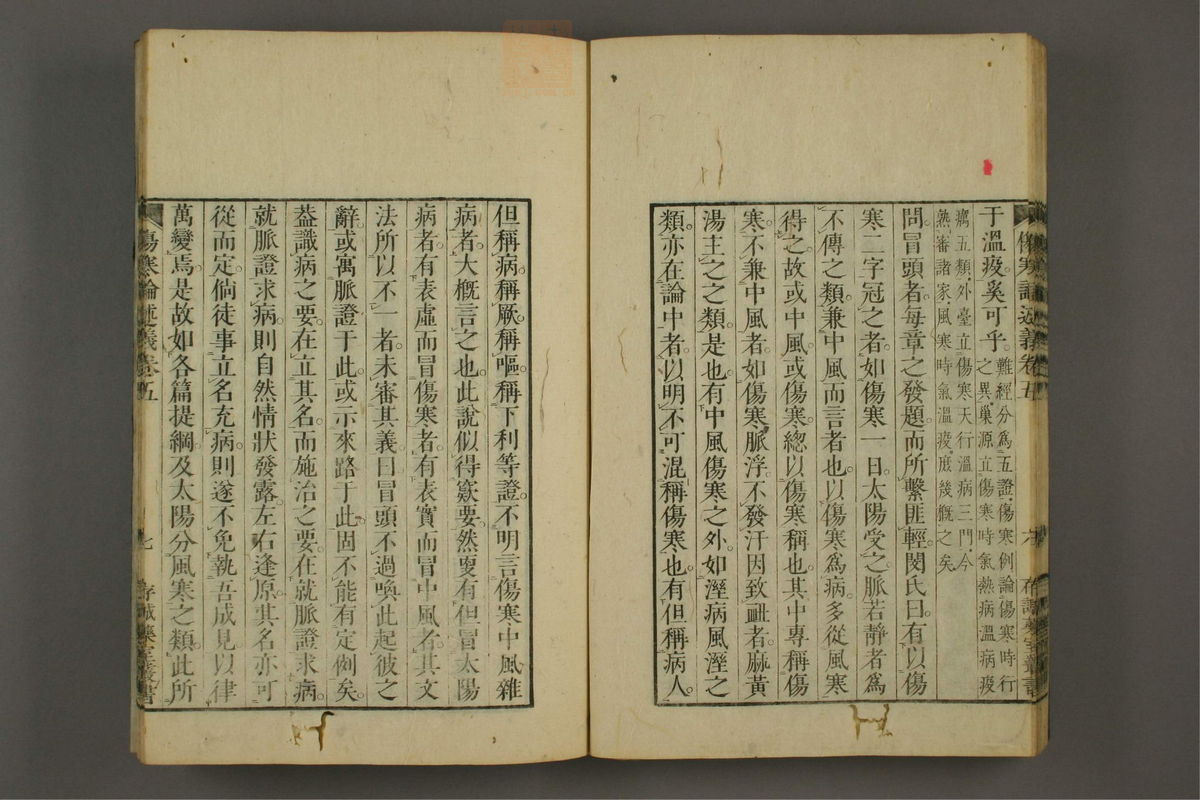 于溫疫奚可乎。難經分爲五證傷寒例論傷寒時行
之異巢源立傷寒時氣熱病溫病疫
癘五類外臺立傷寒天行溫病三門今
熱審諸家風寒時氣溫疫庶幾慨之矣
問冒頭者每章之發題而所繫匪輕閔氏曰有以傷
寒二字冠之者如傷寒一日太陽受之脈若靜者爲
不傳之類兼中風而言者也以傷寒爲病多從風寒
得之故或中風或傷寒總以傷寒稱也其中專稱傷
寒不兼中風者如傷寒脈浮不發汗因致衄者麻黃
湯主之之類是也有中風傷寒之外如溼病風溼之
類亦在論中者以明不可混稱傷寒也有但稱病人
傷寒論述義卷五
六
存誠藥室叢書
但稱病稱厥稱嘔稱下利等證不明言傷寒中風雜
病者大槪言之也此說似得窽要然更有但冒太陽
病者有表虛而冒傷寒者有表實而冒中風者其文
法所以不一者未審其義曰冒頭不過喚此起彼之
辭或寓脈證于此或示來路于此固不能有定例矣
葢識病之要在立其名而施治之要在就脈證求病
就脈證求病則自然情狀發露左右逢原其名亦可
從而定倘徒事立名充病則遂不免執吾成見以律
萬變焉是故如各篇提綱及太陽分風寒之類此所
傷寒論述義卷五
七
存誠藥室叢書